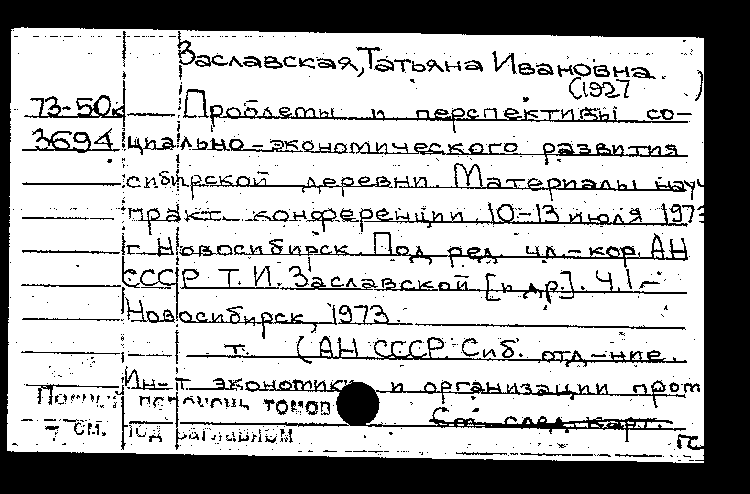 Заславская, Татьяна Ивановна.
(1927 )
73-50к Проблемы и перспективы со-
3694 циально-экономического развития
сибирской деревни. Материалы науч
практ. конференции. 10-13 июля 1973
г. Новосибирск. Под ред. чл.-кор. АН
СССР Т. И. Заславской [и др]. Ч. 1.-
Новосибирск, 1973.
т. (АН СССР. Сиб. отд-ние.
Ин-т экономики и организации пром
Полный перечень томов
См. след. карт.
см. под заглавием